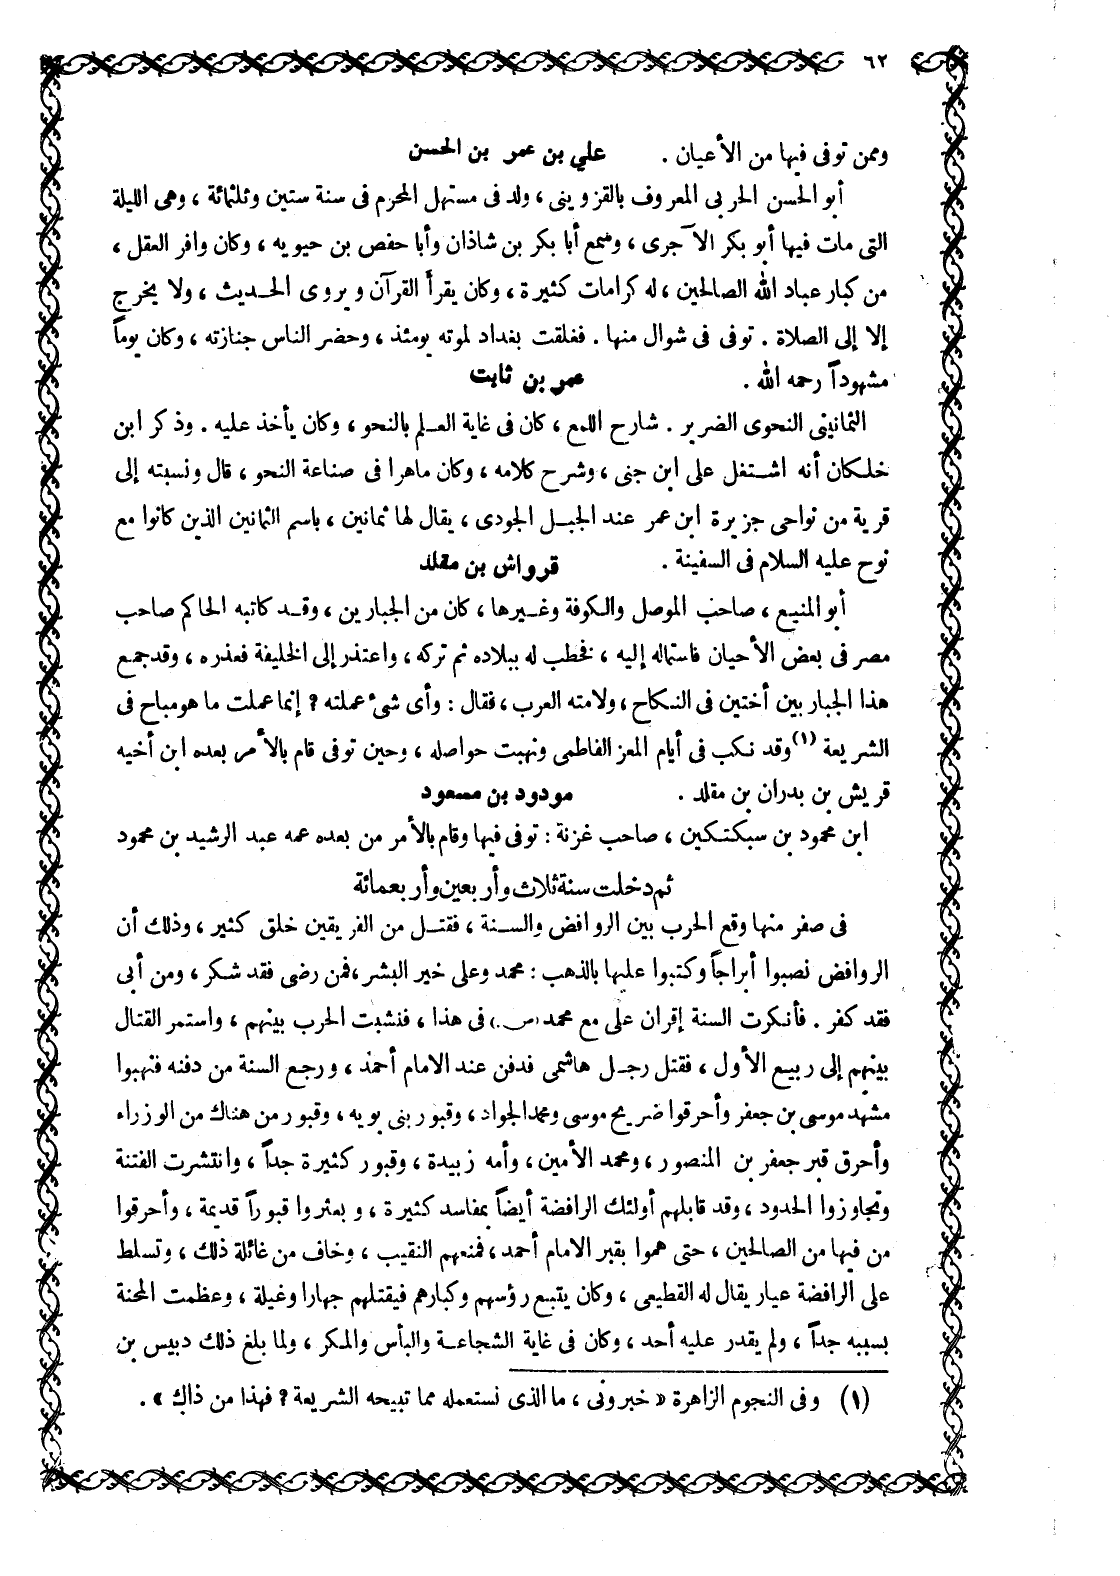 ٦٢
وممن توفى فيها من الأعيان . علي بن عمر بن الحسن
أبو الحسن الحربى المعروف بالقزوينى ، ولد فى مستهل المحرم فى سنة ستين وثلثمائة ، وهى الليلة
التى مات فيها أبو بكر الآجرى ، وسمع أبا بكر بن شاذان وأبا حفص بن حيويه ، وكان وافر العقل ،
من كبار عباد الله الصالحين ، له كرامات كثيرة ، وكان يقرأ القرآن ويروى الحديث ، ولا يخرج
إلا إلى الصلاة . توفى فى شوال منها . فغلقت بغداد لموته يومئذ ، وحضر الناس جنازته ، وكان يوماً
مشهوداً رحمه الله . عمر بن ثابت
الثمانينى النحوى الضرير . شارح اللمع ، كان فى غاية العلم بالنحو ، وكان يأخذ عليه . وذكر ابن
خلكان أنه اشتغل على ابن جنى ، وشرح كلامه ، وكان ماهرا فى صناعة النحو ، قال ونسبته إلى
قرية من نواحى جزيرة ابن عمر عند الجبل الجودى ، يقال لها ثمانين ، باسم الثمانين الذين كانوا مع
نوح عليه السلام فى السفينة . قرواش بن مقلد
أبو المنيع ، صاحب الموصل والكوفة وغيرها ، كان من الجبارين ، وقد كاتبه الحاكم صاحب
مصر فى بعض الأحيان فاستماله إليه ، فخطب له ببلاده ثم تركه ، واعتذر إلى الخليفة فعذره ، وقد جمع
هذا الجبار بين أختين فى النكاح ، ولامته العرب ، فقال : وأى شىء عملته ? إنما عملت ما هو مباح فى
الشريعة (١) وقد نكب فى أيام المعز الفاطمى ونهبت حواصله ، وحين توفى قام بالأمر بعده ابن أخيه
قريش بن بدران بن مقلد . مودود بن مسعود
ابن محمود بن سبكتكين ، صاحب غزنة : توفى فيها وقام بالأمر من بعده عمه عبد الرشيد بن محمود
ثم دخلت سنة ثلاث وأربعين وأربعمائة
فى صفر منها وقع الحرب بين الروافض والسنة ، فقتل من الفريقين خلق كثير ، وذلك أن
الروافض نصبوا أبراجاً وكتبوا عليها بالذهب : محمد وعلى خير البشر ، فمن رضى فقد شكر ، ومن أبى
فقد كفر . فأنكرت السنة إقران على مع محمد (ص) فى هذا ، فنشبت الحرب بينهم ، واستمر القتال
بينهم إلى ربيع الأول ، فقتل رجل هاشمى فدفن عند الامام أحمد ، ورجع السنة من دفنه فنهبوا
مشهد موسى بن جعفر وأحرقوا ضريح موسى ومحمد الجواد ، وقبور بنى بويه ، وقبور من هناك من الوزراء
وأحرق قبر جعفر بن المنصور ، ومحمد الأمين ، وأمه زبيدة ، وقبور كثيرة جداً ، وانتشرت الفتنة
وتجاوزوا الحدود ، وقد قابلهم أولئك الرافضة أيضاً بمفاسد كثيرة ، وبعثروا قبوراً قديمة ، وأحرقوا
من فيها من الصالحين ، حتى هموا بقبر الامام أحمد ، فمنعهم النقيب ، وخاف من غائلة ذلك ، وتسلط
على الرافضة عيار يقال له القطيعى ، وكان يتبع رؤسهم وكبارهم فيقتلهم جهارا وغيلة ، وعظمت المحنة
بسببه جداً ، ولم يقدر عليه أحد ، وكان فى غاية الشجاعة والبأس والمكر ، ولما بلغ ذلك دبيس بن
(١) وفى النجوم الزاهرة « خبرونى ، ما الذى نستعمله مما تبيحه الشريعة ? فهذا من ذاك » .